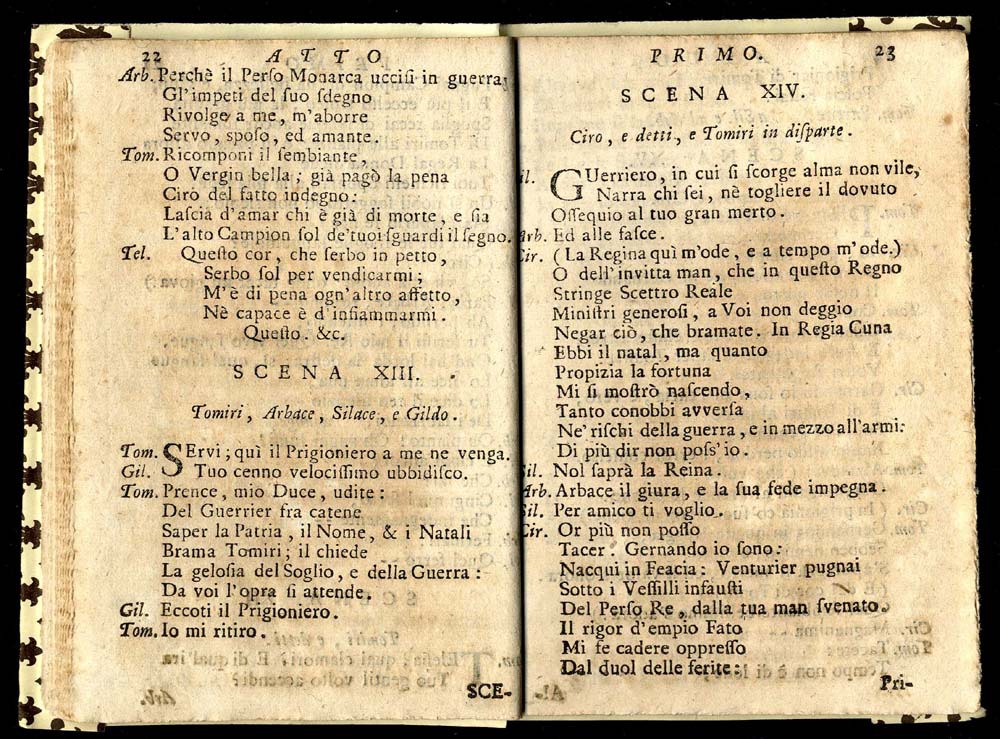 22 ATTO
Arb. Perchè il Perſo Monarca ucciſi in guerra;
Gl'impeti del ſuo ſdegno
Rivolge a me, m'aborre
Servo, ſpoſo, ed amante.
Tom. Ricomponi il ſembiante,
O Vergin bella; già pagò la pena
Cirò del fatto indegno:
Laſcia d'amar chi è già di morte, e ſia
L'alto Campion ſol de'tuoi ſguardi il ſegno.
Tel. Queſto cor, che ſerbo in petto,
Serbo ſol per vendicarmi;
M'è di pena ogn'altro affetto,
Nè capace è d'infiammarmi.
Queſto. &c.
SCENA XIII.
Tomiri, Arbace, Silace, e Gildo.
Tom. SErvi; quì il Prigioniero a me ne venga.
Gil. Tuo cenno velociſſimo ubbidiſco.
Tom. Prence, mio Duce, udite:
Del Guerrier fra catene
Saper la Patria, il Nome, & i Natali
Brama Tomiri; il chiede
La geloſia del Soglio, e della Guerra:
Da voi l'opra ſi attende.
Gil. Eccoti il Prigioniero.
Tom. Io mi ritiro.
SCE-
PRIMO. 23
SCENA XIV.
Ciro, e detti, e Tomiri in diſparte.
il. GUerriero, in cui ſi ſcorge alma non vile,
Narra chi ſei, nè togliere il dovuto
Oſſequio al tuo gran merto.
Arb. Ed alle faſce.
Cir. (La Regina quì m'ode, e a tempo m'ode.)
O dell'invitta man, che in queſto Regno
Stringe Scettro Reale
Miniſtri generoſi, a Voi non deggio
Negar ciò, che bramate. In Regia Cuna
Ebbi il natal, ma quanto
Propizia la fortuna
Mi ſi moſtrò naſcendo,
Tanto conobbi avverſa
Ne' riſchi della guerra, e in mezzo all'armi:
Di più dir non poſſ'io.
Sil. Nol ſaprà la Reina.
Arb. Arbace il giura, e la ſua fede impegna.
Sil. Per amico ti voglio.
Cir. Or più non poſſo
Tacer. Gernando io ſono:
Nacqui in Feacia: Venturier pugnai
Sotto i Veſſilli infauſti
Del Perſo Re, dalla tua man ſvenato.
Il rigor d'empio Fato
Mi fe cadere oppreſſo
Dal duol delle ferite:
Pri-